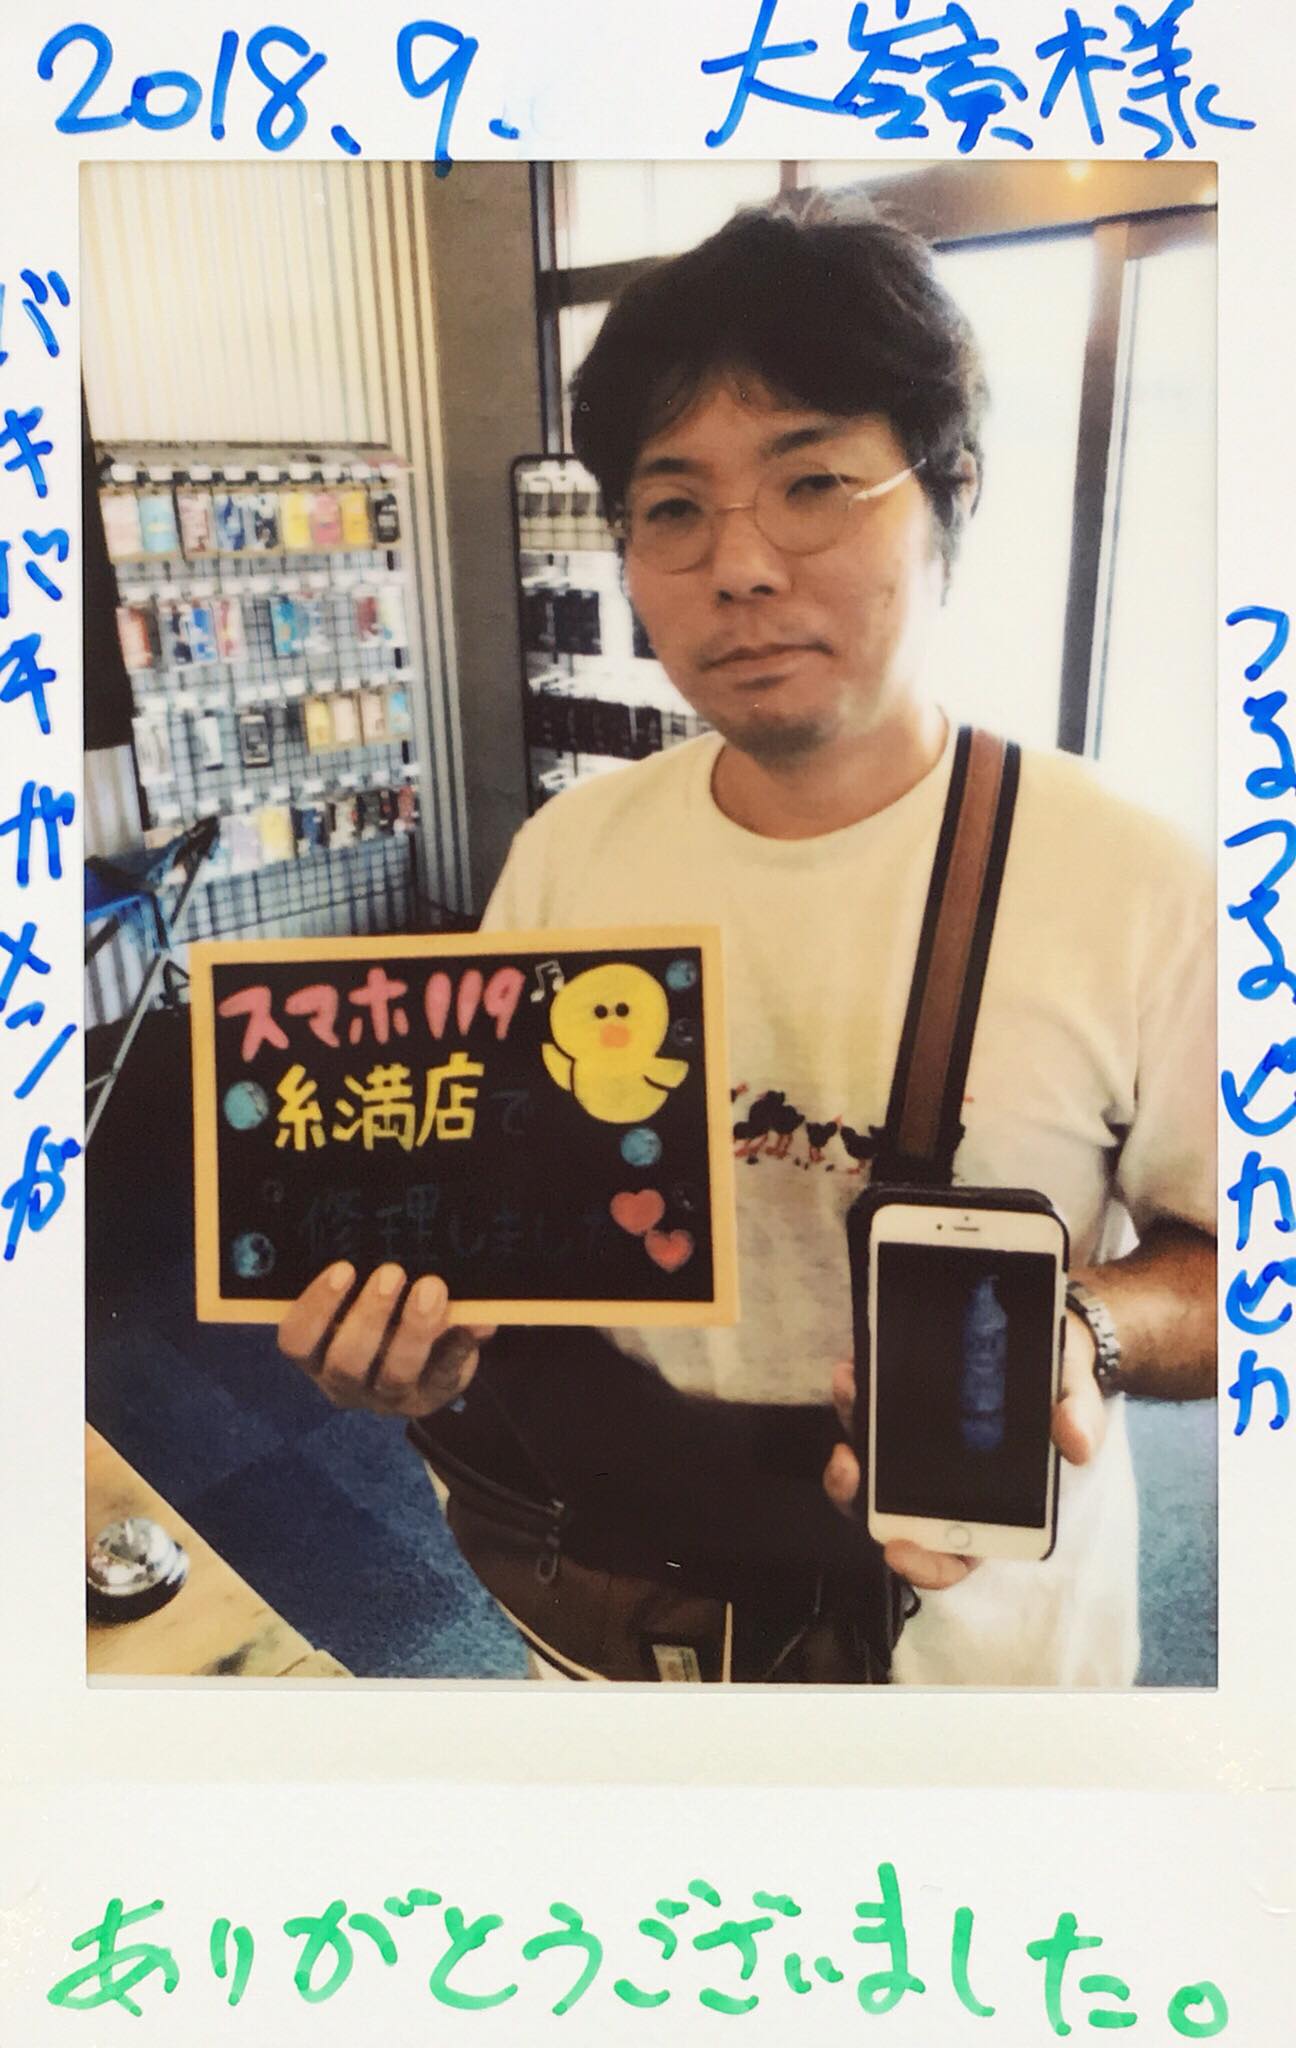 2018.9. 大嶺様
バキバキガメンが
つるつるピカピカ
スマホ119
糸満店で
修理しました
ありがとうございました。